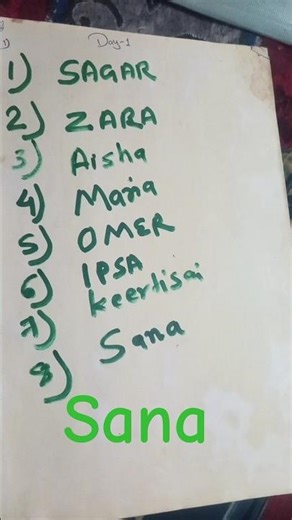 Day-1
1) SAGAR
2) ZARA
3) Aisha
4) Maria
5) OMER
6) IPSA
7) Keertisai
8) Sana
Sana